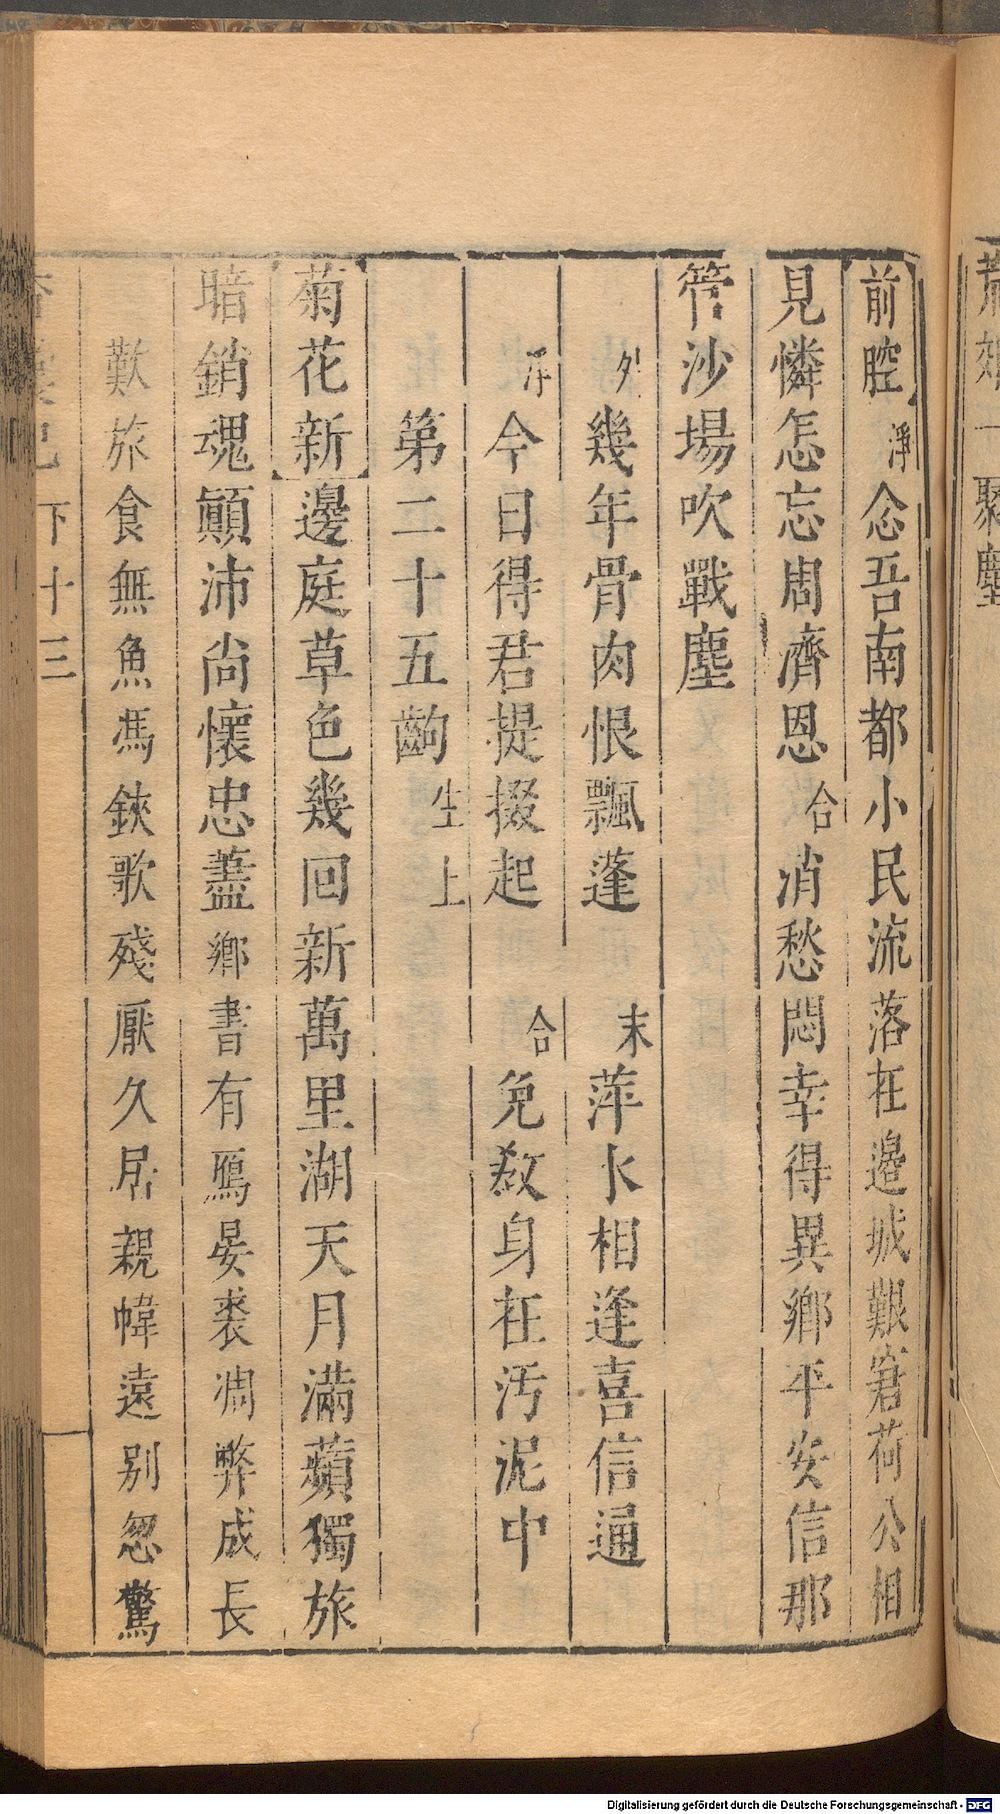 前腔淨念吾南都小民流落在邊城艱窘荷公相
見憐怎忘周濟恩合消愁悶幸得異鄉平安信那
管沙場吹戰塵
外幾年骨肉恨飄蓬末萍水相逢喜信通
淨今日得君提掇起合免教身在汚泥中
第二十五齣生上
菊花新邊庭草色幾回新萬里湖天月滿蘋獨旅
暗銷魂顚沛尚懷忠藎鄉書有鴈晏裘凋弊成長
歎旅食無魚馮鋏歌殘厭久居親幃遠別忽驚
下十三
Digitalisierung gefördert durch die Deutsche Forschungsgemeinschaft - DFG